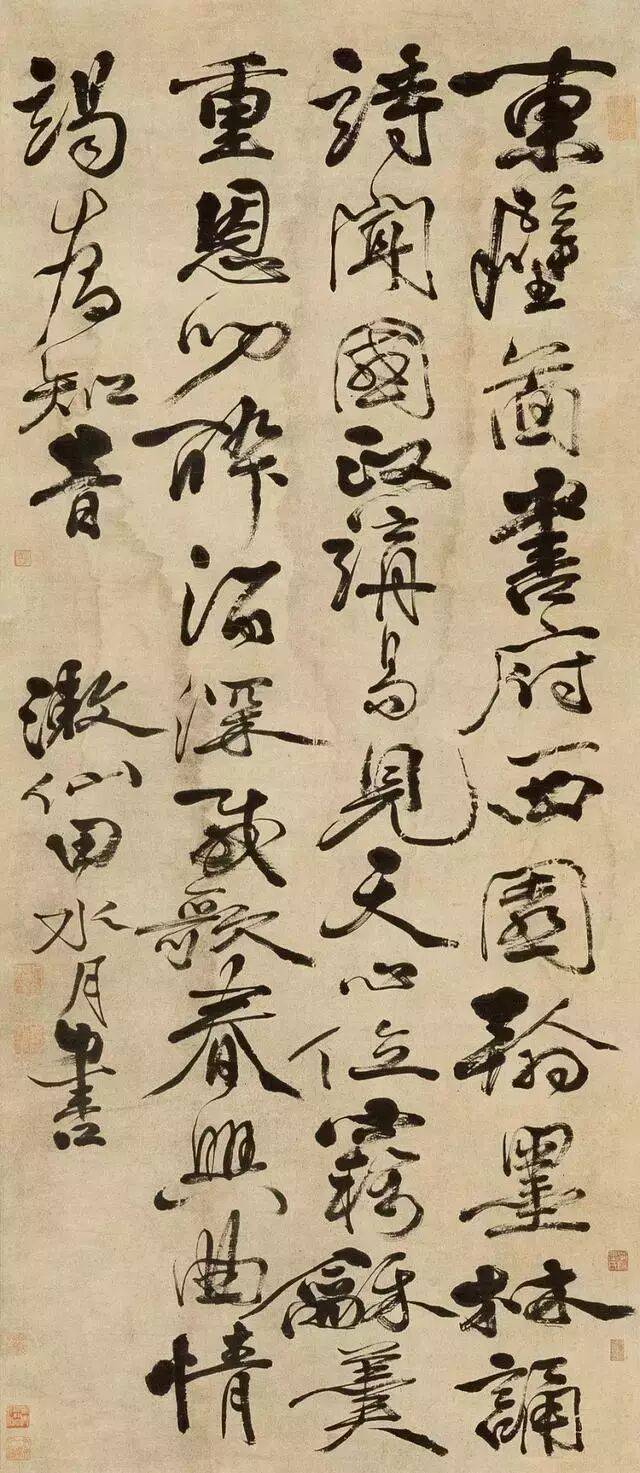 東壁圖書府西園翰墨林誦
詩聞國政講易見天心位竊龢羹
重恩叨醉酒深載歌春興曲情
竭為知音
漱仙田水月書